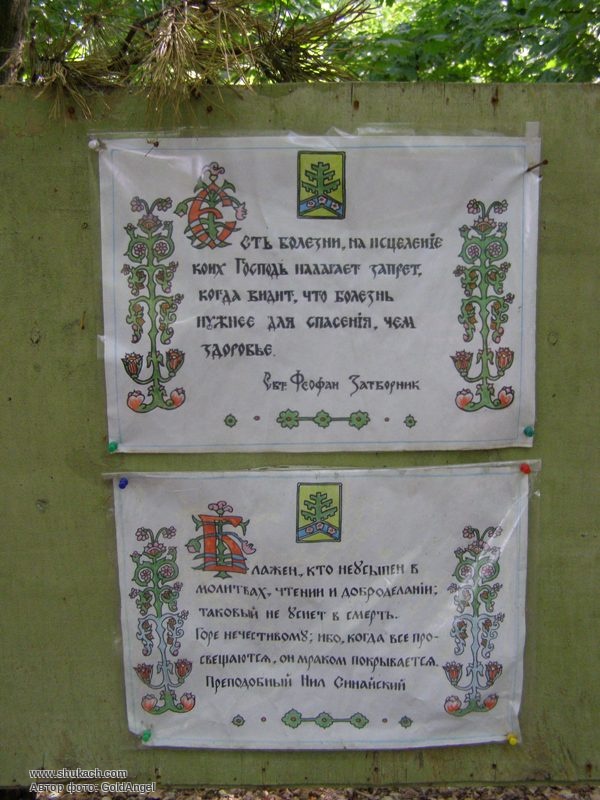 Есть болезни, на исцеленіе
коих Господь налагает запрет,
когда видит, что болезнь
нужнее для спасенія, чем
здоровье.
Свт. Феофан Затворник
Блажен, кто неусыпен в
молитвах, чтении и доброделаніи;
таковый не уснет в смерть.
Горе нечестивому; ибо, когда все про-
свещаются, он мраком покрывается.
Преподобный Нил Синайский
www.shukach.com
Автор фото: GoldAngel